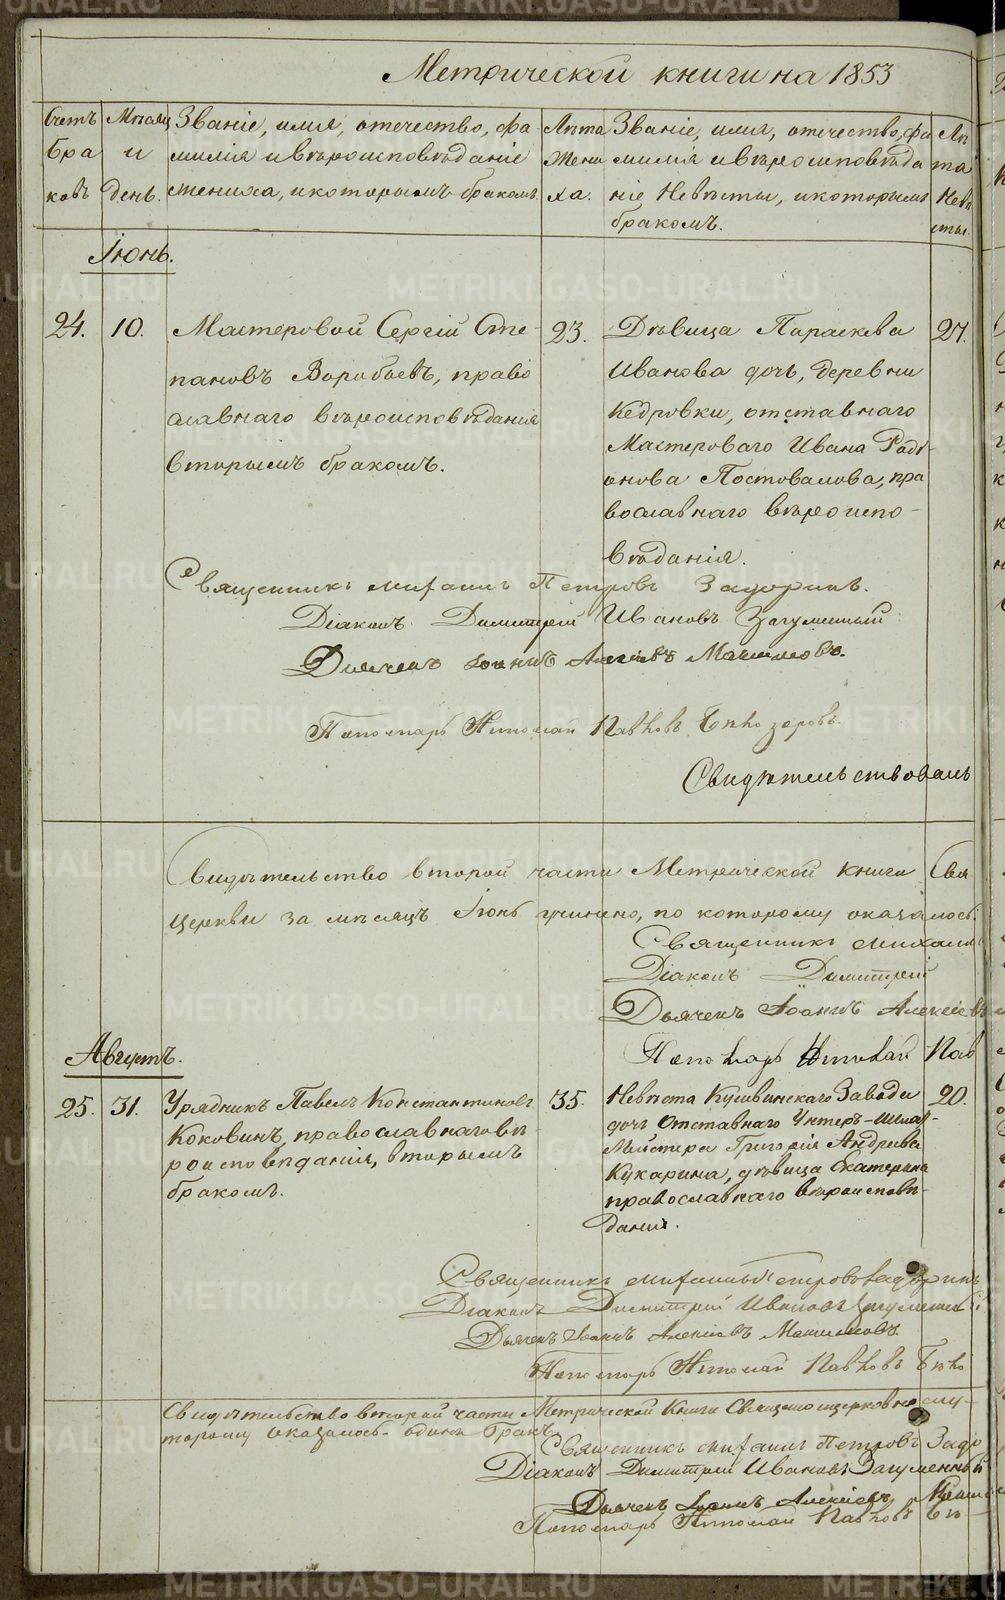 Метрической книги на 1853
Счетъ браковъ
Мѣсяцъ и день.
Званіе, имя, отечество, фа
милія и вѣроисповѣданіе
жениха, и которымъ бракомъ.
Лѣта
жени
ха.
Званіе, имя, отечество, фа
милія и вѣроисповѣда
ніе Невѣсты, и которымъ
бракомъ.
Лѣ
та
Невѣ
сты.
Іюнь.
24.
10.
Мастеровой Сергій Сте-
пановъ Воробьевъ, право
славнаго вѣроисповѣданія
вторымъ бракомъ.
23.
Дѣвица Параскева
Иванова дочь, деревни
Кедровки, отставнаго
Мастероваго Ивана Роді-
онова Постовалова, пра
вославнаго вѣроиспо-
вѣданія.
27.
Священникъ Михаилъ Петровъ Задоринъ.
Діаконъ Димитрій Ивановъ Загуменный
Дьячекъ Іоаннъ
Пономарь Николай Павловъ
Свидѣтельствовалъ
Свидѣтельство второй части Метрической книги Свя
церкви за мѣсяцъ Іюнь учинено, по которому оказалось.
Священникъ Михаилъ
Діаконъ Димитрій
Дьячекъ Іоаннъ Алексіевъ
Пономарь Николай Пав
Августъ.
25.
31.
Урядникъ Павелъ Константиновъ
Коковинъ, православнаго вѣ
роисповѣданія, вторымъ
бракомъ.
35.
Невѣста Кушвинскаго Завода
дочь Отставнаго Унтеръ-шихт-
Мейстера Григорія Андреева
Кукарина, дѣвица Екатерина
православнаго вѣроисповѣ-
данія.
20.
Священникъ Михаилъ Петровъ Задоринъ
Діаконъ Димитрій Ивановъ Загуменный
Дьячекъ Іоаннъ Алексіевъ
Пономарь Николай Павловъ Бѣло
Свидѣтельство второй части Метрической Книги Священноцерковнослу-
торому оказалось- одинъ бракъ.
Священникъ Михаилъ Петровъ Задо
Діаконъ Димитрій Ивановъ Загуменный
Дьячекъ Іоаннъ Алексіевъ
Пономарь Николай Павловъ Бѣ-
METRIKI.GASO-URAL.RU